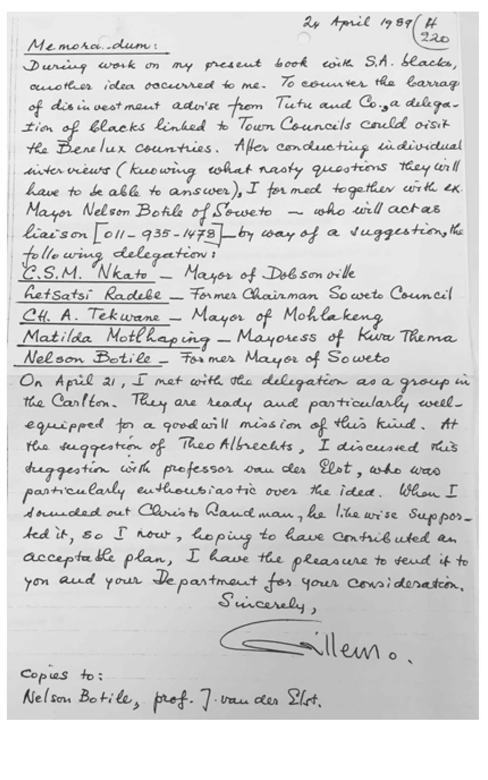 24 April 1989 H
220
Memora dum:
During work on my present book with S.A. blacks,
another idea occurred to me. To counter the barrag
of disinvestment advise from Tutu and Co., a delega-
tion of blacks linked to Town Councils could visit
the Benelux countries. After conducting individual
interviews (knowing what nasty questions they will
have to be able to answer), I formed together with ex.
Mayor Nelson Botile of Soweto — who will act as
liaison [011-935-1478] — by way of a suggestion, the
following delegation:
C.S.M. Nkato — Mayor of Dobsonville
Letsatsi Radebe — Former Chairman Soweto Council
CH. A. Tekwane — Mayor of Mohlakeng
Matilda Motlhaping — Mayoress of Kwa Thema
Nelson Botile — Former Mayor of Soweto
On April 21, I met with the delegation as a group in
the Carlton. They are ready and particularly well-
equipped for a goodwill mission of this kind. At
the suggestion of Theo Albrechts, I discussed this
suggestion with professor van der Elst, who was
particularly enthousiastic over the idea. When I
sounded out Christo Landman, he likewise suppor-
ted it, so I now, hoping to have contributed an
acceptable plan, I have the pleasure to send it to
you and your Department for your consideration.
Sincerely,
Copies to:
Nelson Botile, prof. J. van der Elst.